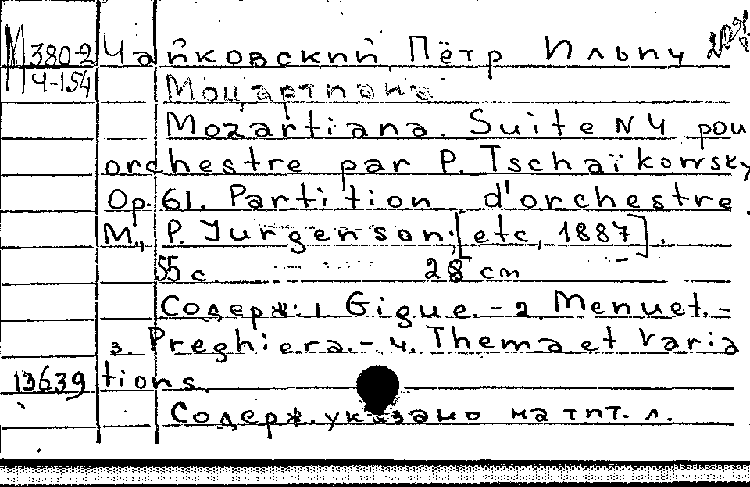 М 380-2 Чайковский, Пётр Ильич
Ч-154 Моцартиана
Mozartiana. Suite N 4 pou
orchestre par P. Tschaïkowsky
Op. 61. Partition d'orchestre.
М., P. Jurgenson; [etc, 1887].
55 с 28 см
Содерж: 1. Gigue. - 2. Menuet. -
3. Preghiera. - 4. Thema et Varia
13639 tions.
Содерж. указано на тит. л.